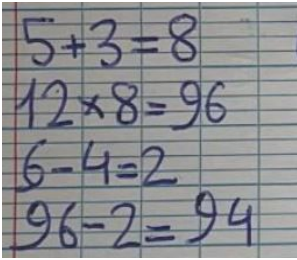 5+3=8
12×8=96
6-4=2
96-2=94